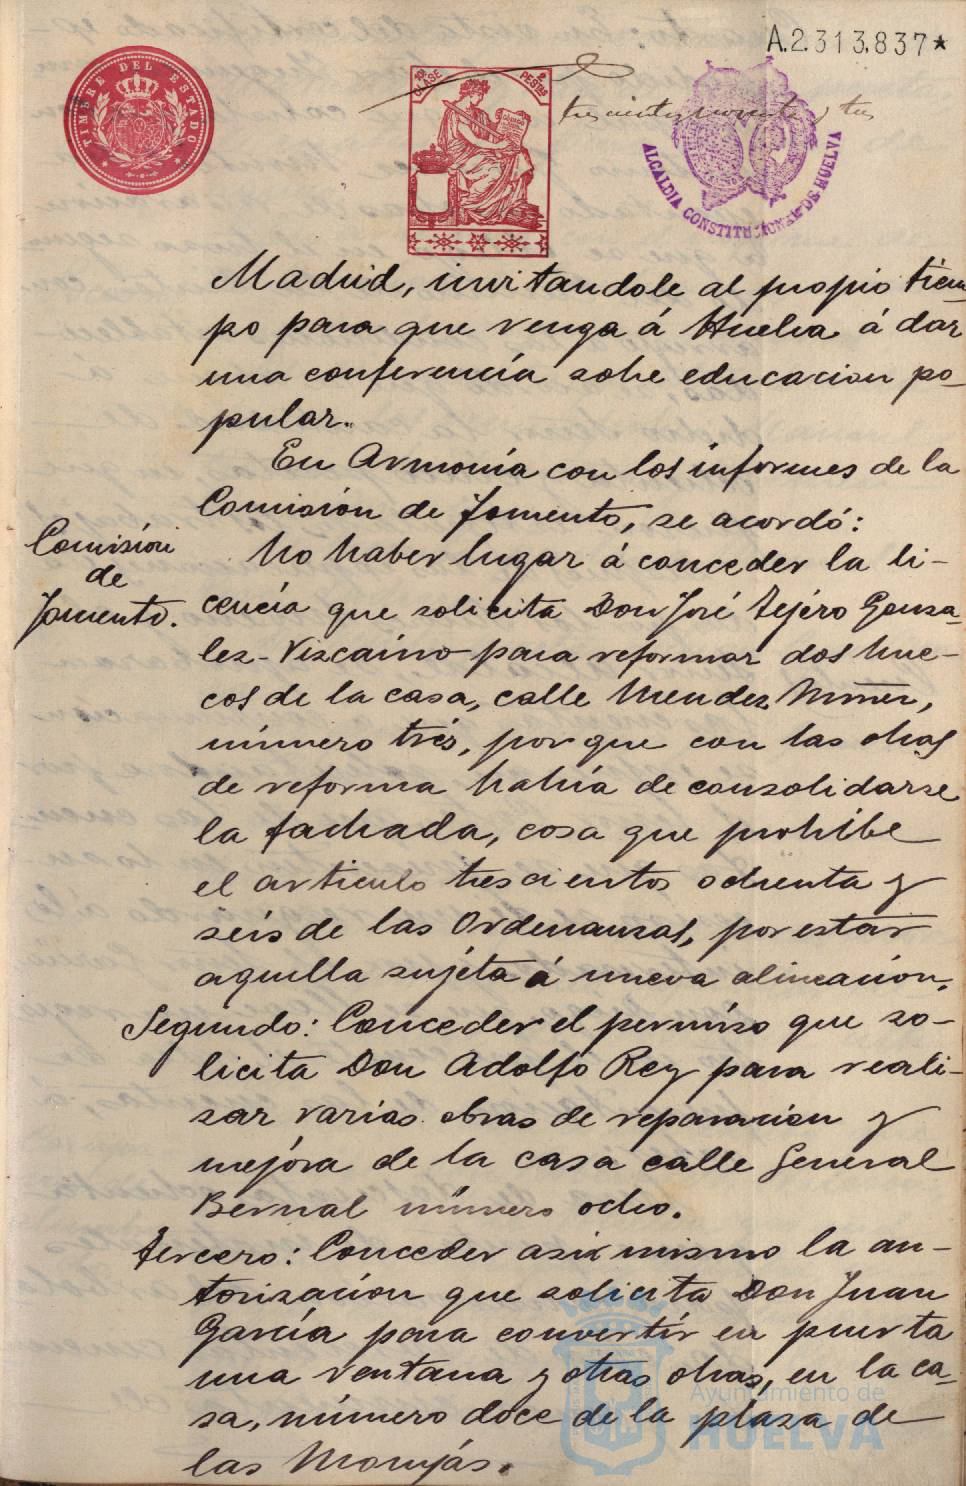 A.2.313.837★
TIMBRE DEL ESTADO
10ª CLASE 2 PESTAS
trescientos noventa y tres
ALCALDIA CONSTITUCIONAL DE HUELVA
Madrid, invitandole al propio tiem-
po para que venga á Huelva á dar
una conferencía sobre educacion po-
pular.
En Armonía con los informes de la
Comisión de Fomento, se acordó:
Comisión
de
Fomento.
No haber lugar á conceder la li-
cencía que solicita Don José Tejéro Gonsa-
lez-Viscaíno para reformar dos hue-
cos de la casa, calle Mendez Nuñez,
número trés, por que con las obras
de reforma había de consolidarse
la fachada, cosa que prohíbe
el articulo trescientos ochenta y
séis de las Ordenanzas, por estar
aquella sujéta á nueva alineación.
Segúndo: Conceder el permíso que so-
licita Don Adolfo Rey para reali-
sar varias obras de reparacion y
mejóra de la casa calle General
Bernal número ocho.
Tercero: Conceder asix mismo la au-
torisacíon que solicita Don Juan
García para convertír en puerta
una ventana y otras obras, en la ca-
sa, número doce de la plaza de
las Monjás.
Ayuntamiento de
HUELVA